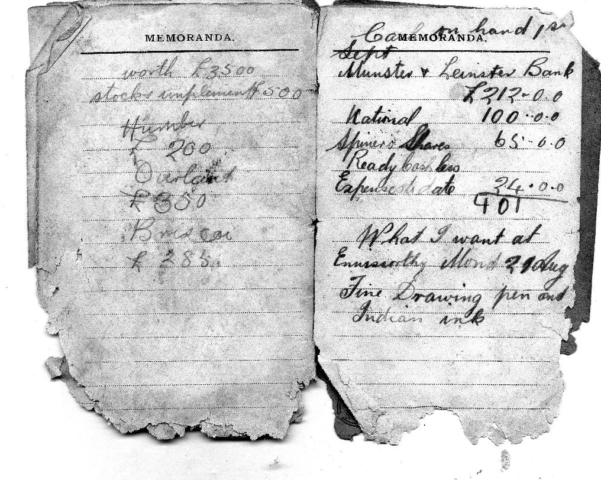 MEMORANDA.
worth £3500
stock & implements £500
Humber
£ 200
Overland
£ 350
Briscoe
£ 285
MEMORANDA.
Cash on hand 1st
Sept
Munster & Leinster Bank
£212-0.0
National 100-0.0
Shares 65-0.0
Ready cash less
Expenses to date 24.0.0
401
What I want at
Enniscorthy Mond 29 Aug
Fine Drawing pen and
Indian ink